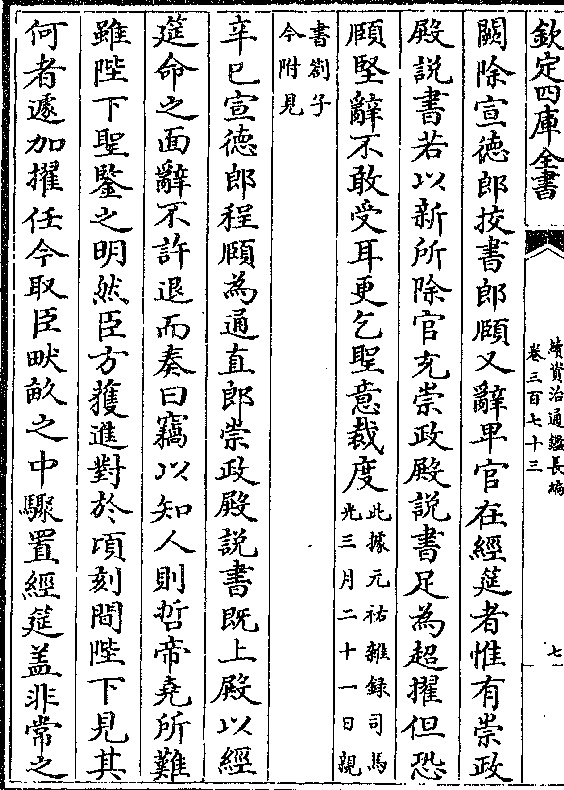 欽定四庫全書
續資治通鑑長編
卷三百七十三
七
闕除宣徳郎挍書郎頤又辭卑官在經筵者惟有崇政
殿説書若以新所除官充崇政殿説書足為超擢但恐
頤堅辭不敢受耳更乞聖意裁度此據元祐雜録司馬
光三月二十一日親
書劄子
今附見
辛巳宣徳郎程頤為通直郎崇政殿説書既上殿以經
筵命之面辭不許退而奏曰竊以知人則哲帝堯所難
雖陛下聖鑒之明然臣方獲進對於頃刻間陛下見其
何者遽加擢任今取臣畎畝之中驟置經筵盖非常之